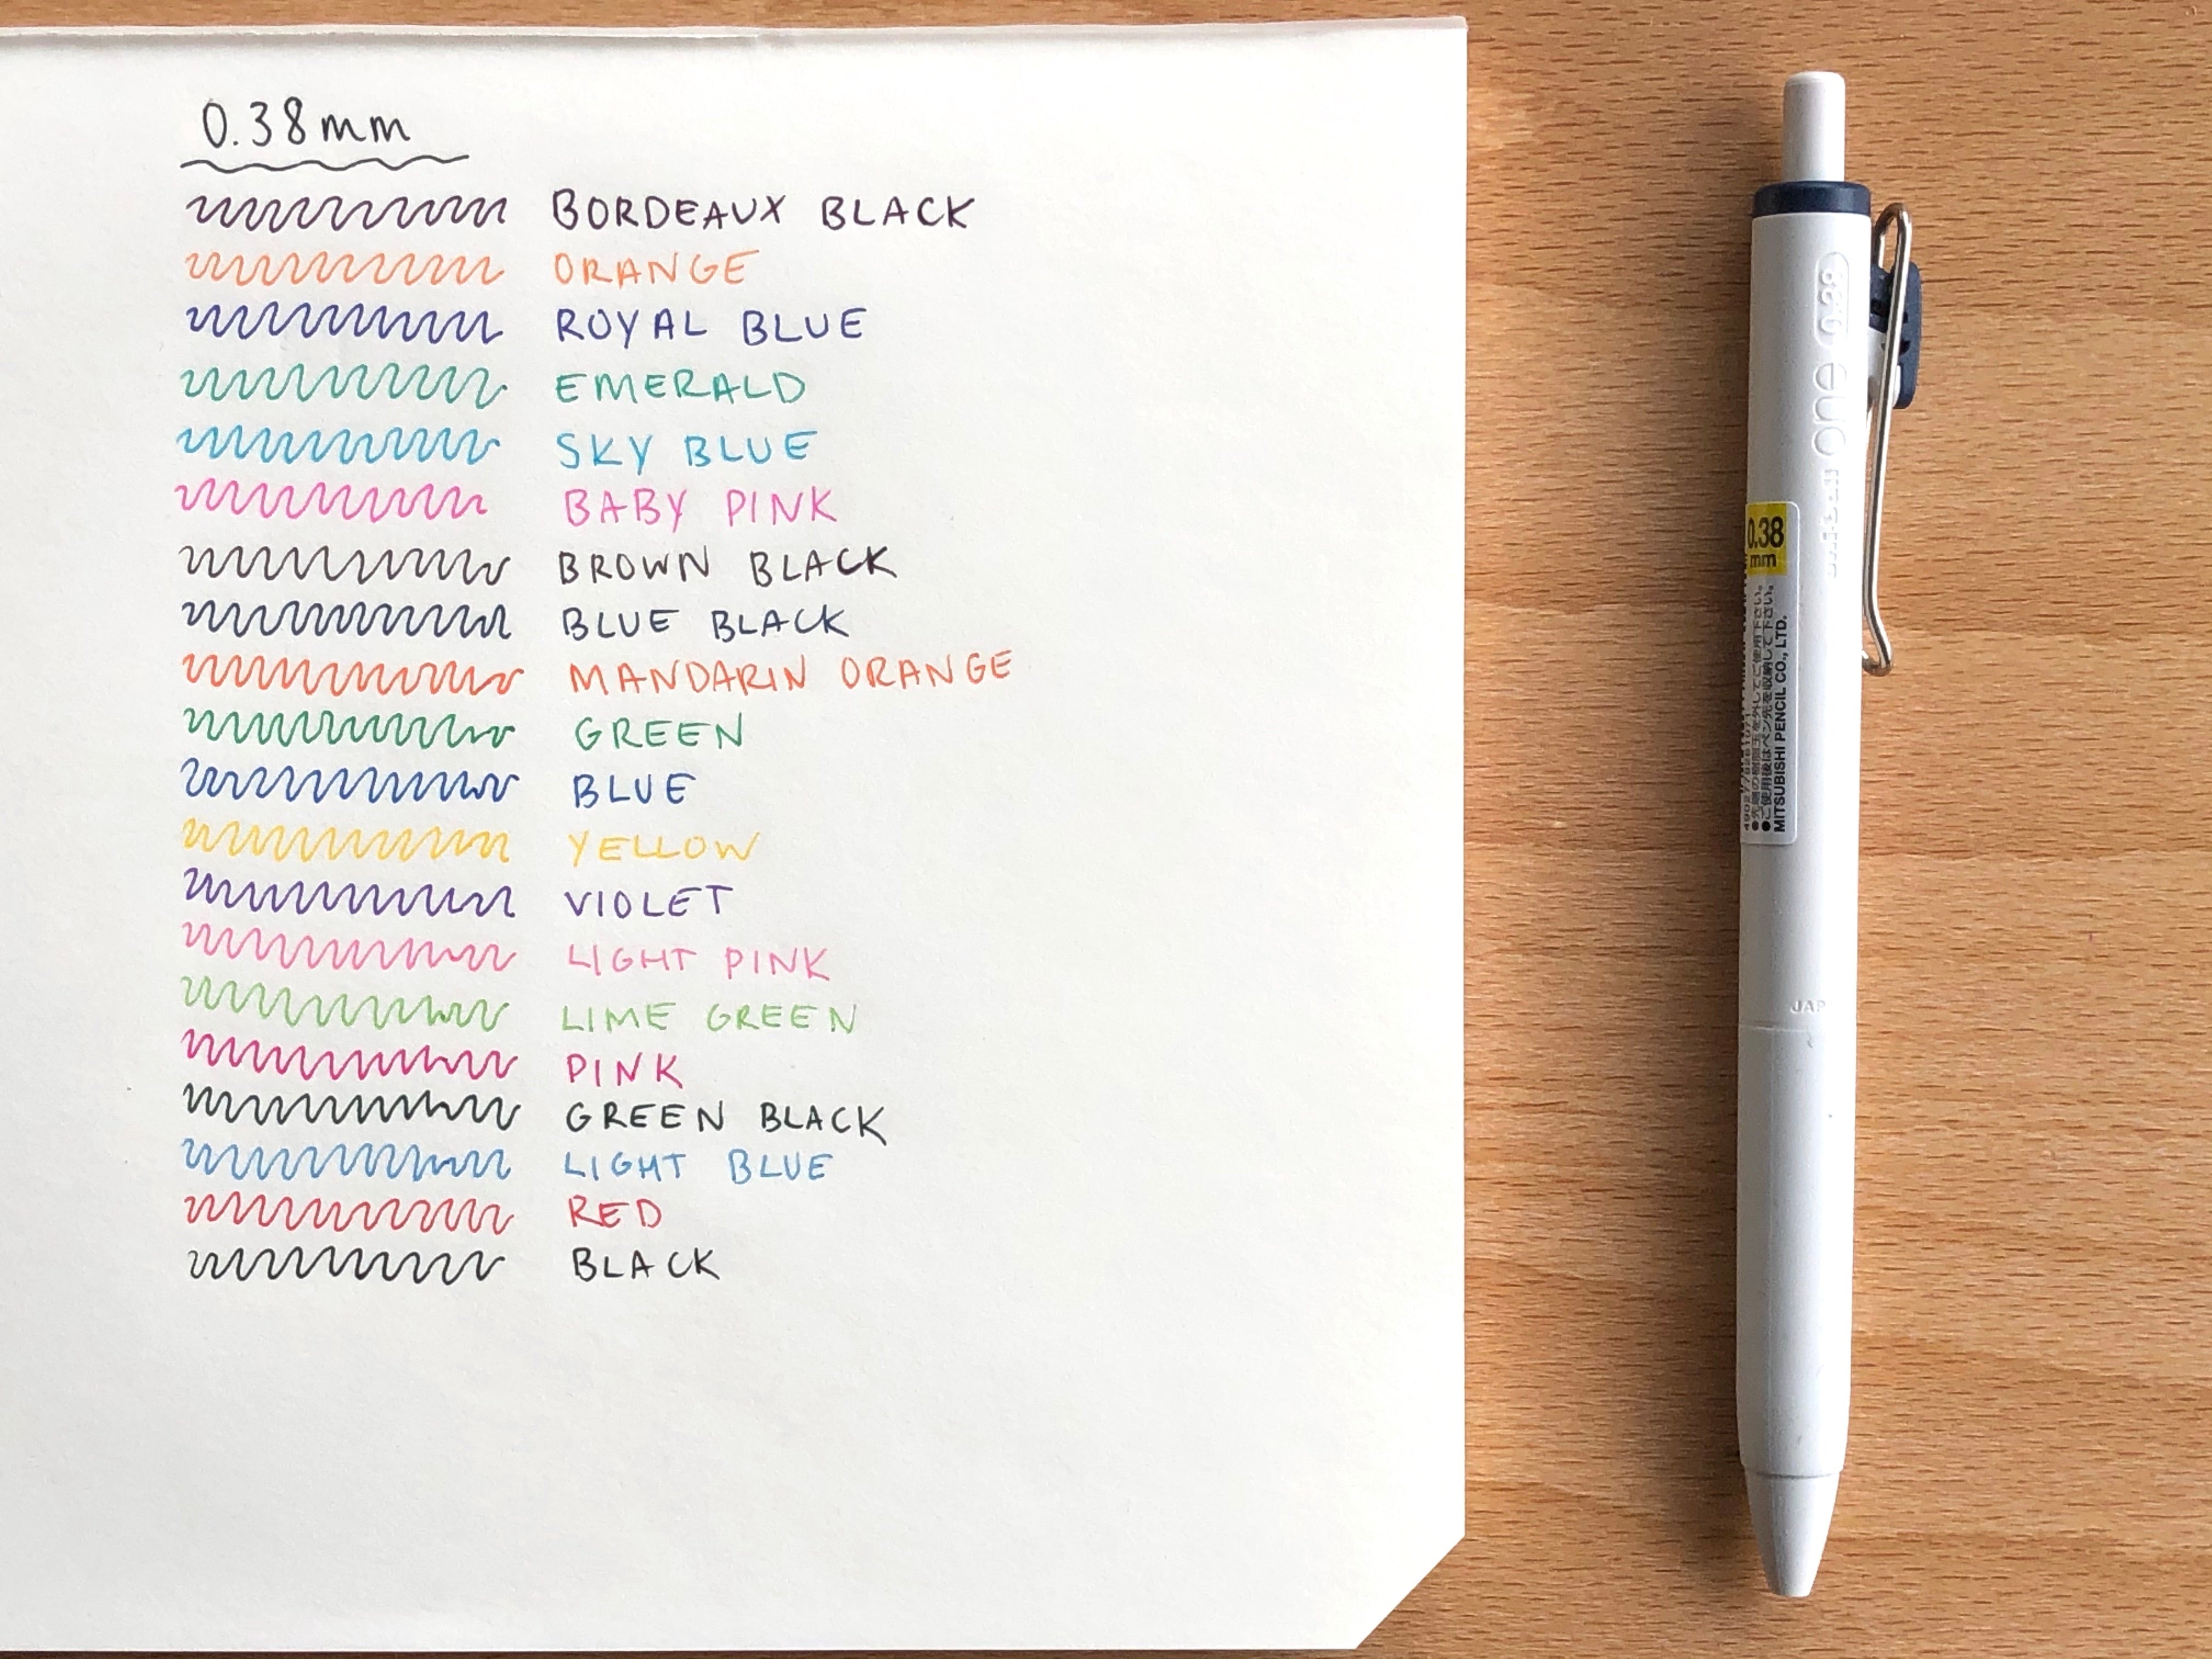 0.38mm
BORDEAUX BLACK
ORANGE
ROYAL BLUE
EMERALD
SKY BLUE
BABY PINK
BROWN BLACK
BLUE BLACK
MANDARIN ORANGE
GREEN
BLUE
YELLOW
VIOLET
LIGHT PINK
LIME GREEN
PINK
GREEN BLACK
LIGHT BLUE
RED
BLACK
uni-ball one 0.38
0.38
mm
●先端の樹脂玉を外してご使用下さい。
●ご使用後はペン先を収納して下さい。
MITSUBISHI PENCIL CO., LTD.
JAP